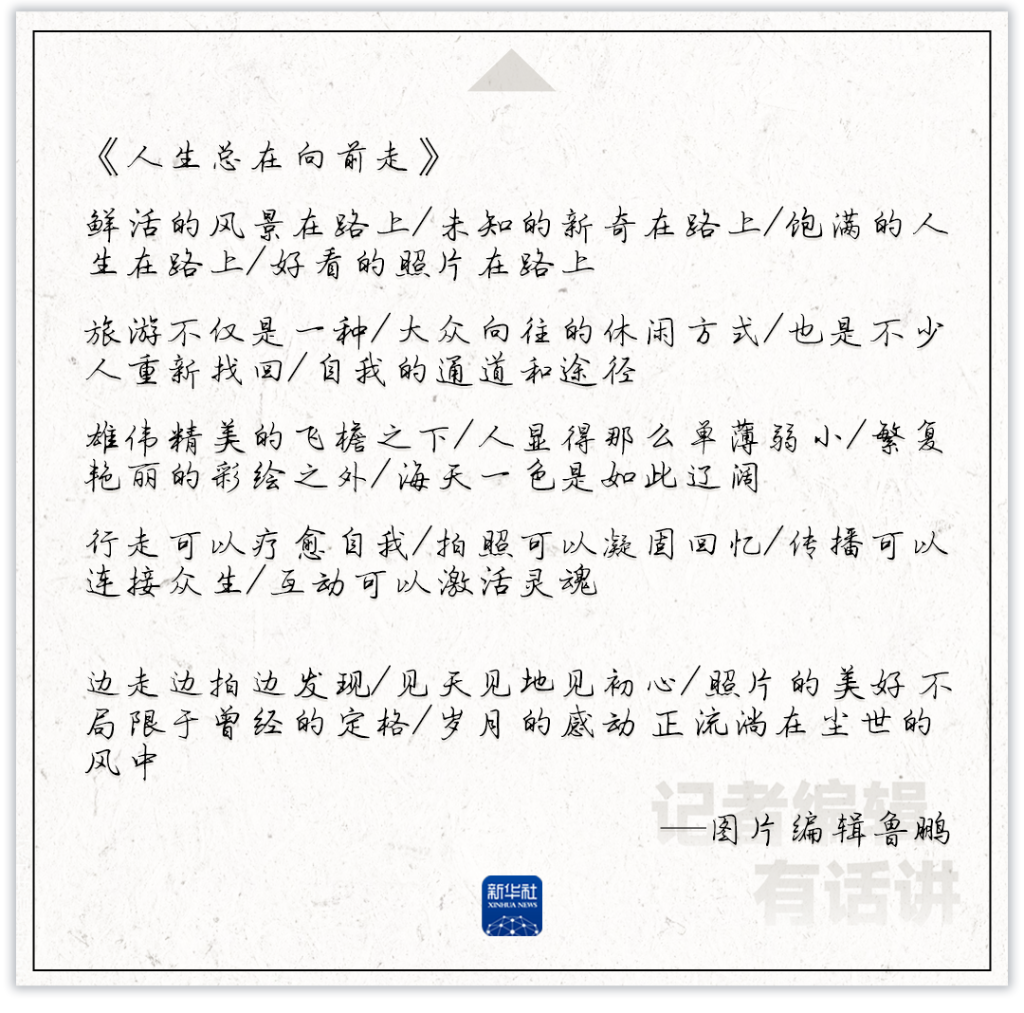 《人生总在向前走》
鲜活的风景在路上/未知的新奇在路上/饱满的人
生在路上/好看的照片在路上
旅游不仅是一种/大众向往的休闲方式/也是不少
人重新找回/自我的通道和途径
雄伟精美的飞檐之下/人显得那么单薄弱小/繁复
艳丽的彩绘之外/海天一色是如此辽阔
行走可以疗愈自我/拍照可以凝固回忆/传播可以
连接众生/互动可以激活灵魂
边走边拍边发现/见天见地见初心/照片的美好不
局限于曾经的定格/岁月的感动正流淌在尘世的
风中
记者编辑
——图片编辑鲁鹏
有话讲
新华社
XINHUA NEWS